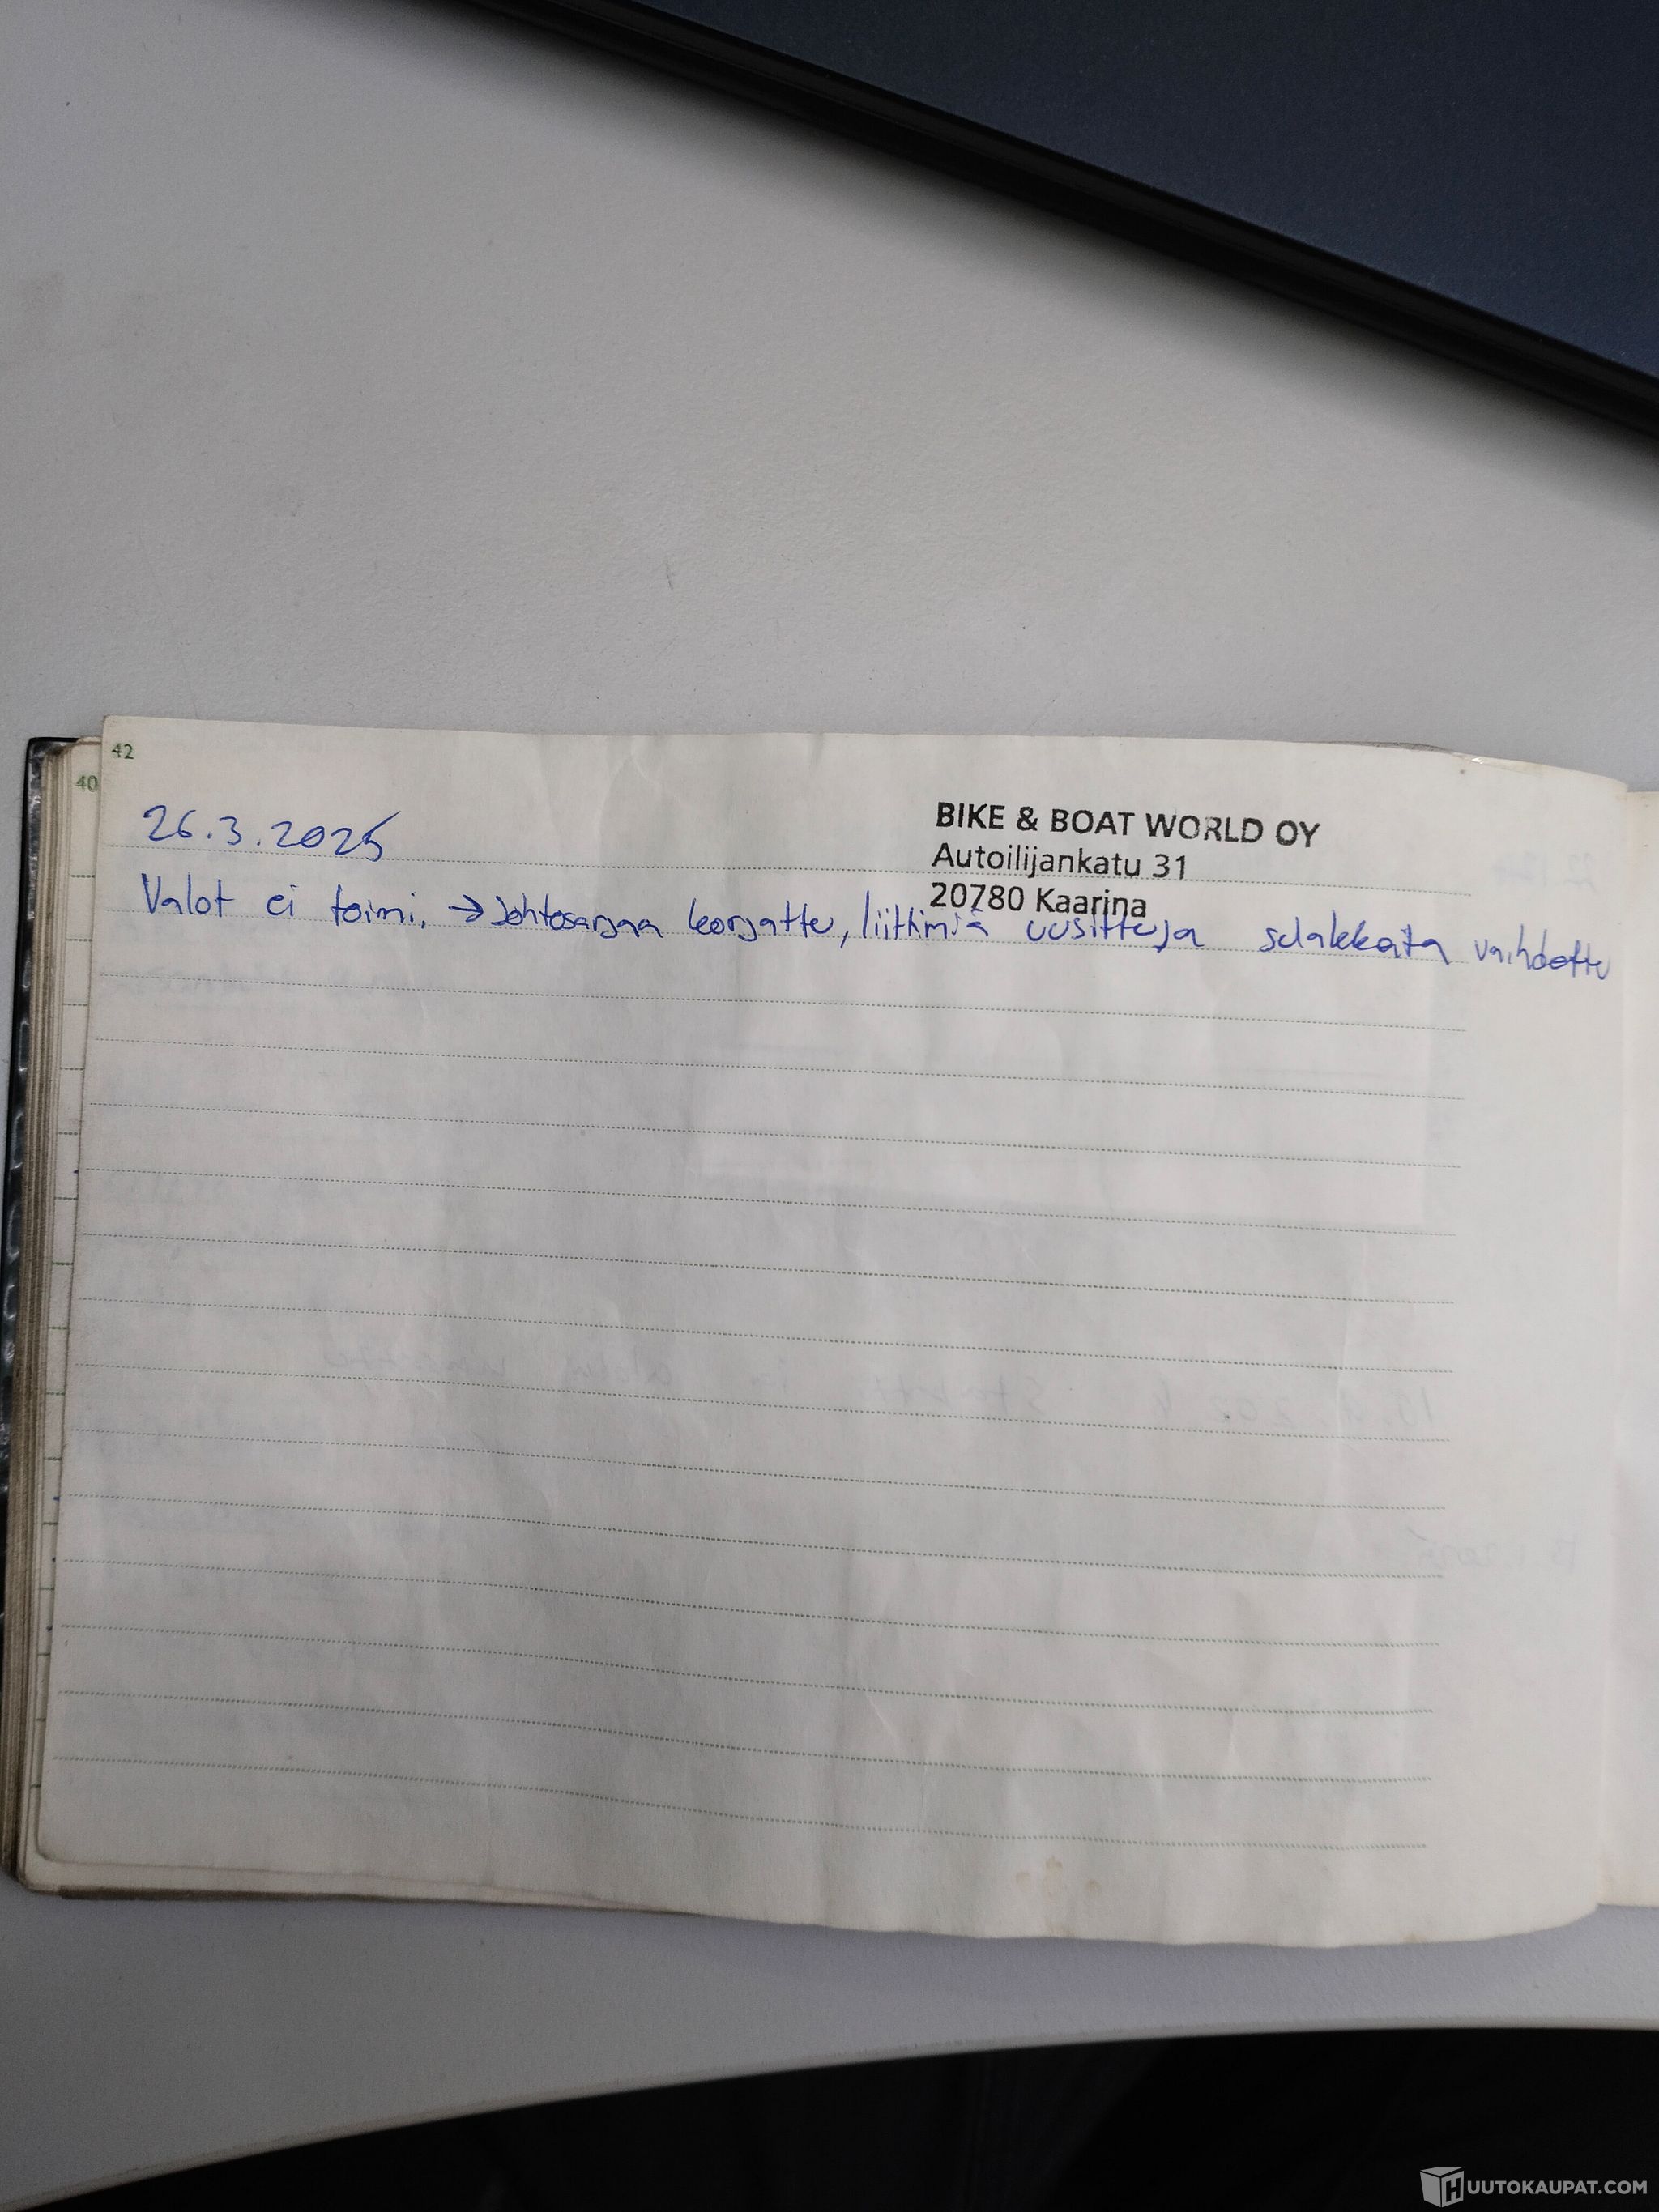 42
40
26.3.2025
BIKE & BOAT WORLD OY
Autoilijankatu 31
20780 Kaarina
Valot ei toimi. → Johtosarjaa korjattu, liittimiä uusittu ja sulakkeita vaihdettu
HUUTOKAUPAT.COM